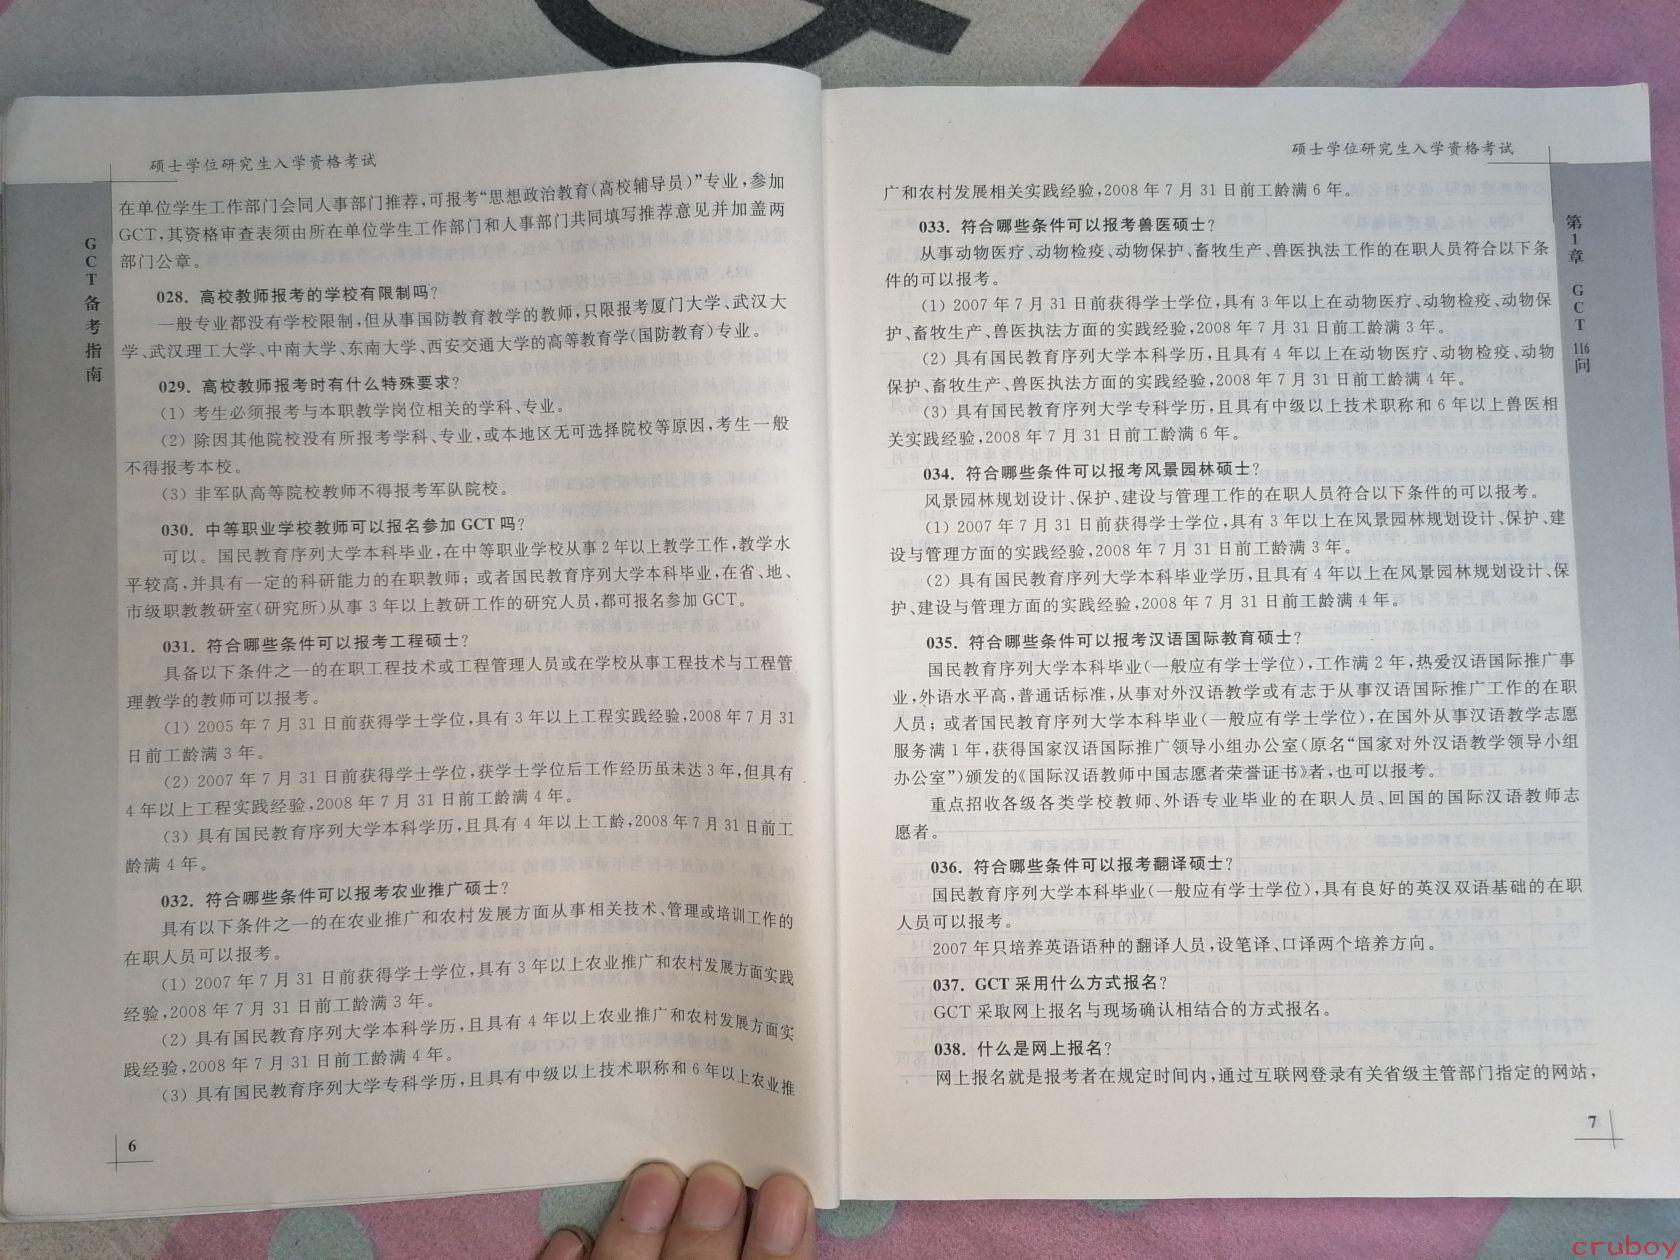 硕士学位研究生入学资格考试
在单位学生工作部门会同人事部门推荐,可报考“思想政治教育(高校辅导员)”专业,参加
GCT,其资格审查表须由所在单位学生工作部门和人事部门共同填写推荐意见并加盖两
部门公章。
028. 高校教师报考的学校有限制吗?
一般专业都没有学校限制,但从事国防教育教学的教师,只限报考厦门大学、武汉大
学、武汉理工大学、中南大学、东南大学、西安交通大学的高等教育学(国防教育)专业。
029. 高校教师报考时有什么特殊要求?
(1) 考生必须报考与本职教学岗位相关的学科、专业。
(2) 除因其他院校没有所报考学科、专业,或本地区无可选择院校等原因,考生一般
不得报考本校。
(3) 非军队高等院校教师不得报考军队院校。
030. 中等职业学校教师可以报名参加 GCT 吗?
可以。国民教育序列大学本科毕业,在中等职业学校从事 2 年以上教学工作,教学水
平较高,并具有一定的科研能力的在职教师；或者国民教育序列大学本科毕业,在省、地、
市级职教教研室(研究所)从事 3 年以上教研工作的研究人员,都可报名参加 GCT。
031. 符合哪些条件可以报考工程硕士?
具备以下条件之一的在职工程技术或工程管理人员或在学校从事工程技术与工程管
理教学的教师可以报考。
(1) 2005 年 7 月 31 日前获得学士学位,具有 3 年以上工程实践经验,2008 年 7 月 31
日前工龄满 3 年。
(2) 2007 年 7 月 31 日前获得学士学位,获学士学位后工作经历虽未达 3 年,但具有
4 年以上工程实践经验,2008 年 7 月 31 日前工龄满 4 年。
(3) 具有国民教育序列大学本科学历,且具有 4 年以上工龄,2008 年 7 月 31 日前工
龄满 4 年。
032. 符合哪些条件可以报考农业推广硕士?
具有以下条件之一的在农业推广和农村发展方面从事相关技术、管理或培训工作的
在职人员可以报考。
(1) 2007 年 7 月 31 日前获得学士学位,具有 3 年以上农业推广和农村发展方面实践
经验,2008 年 7 月 31 日前工龄满 3 年。
(2) 具有国民教育序列大学本科学历,且具有 4 年以上农业推广和农村发展方面实
践经验,2008 年 7 月 31 日前工龄满 4 年。
(3) 具有国民教育序列大学专科学历,且具有中级以上技术职称和 6 年以上农业推
GCT备考指南
6
硕士学位研究生入学资格考试
广和农村发展相关实践经验,2008 年 7 月 31 日前工龄满 6 年。
033. 符合哪些条件可以报考兽医硕士?
从事动物医疗、动物检疫、动物保护、畜牧生产、兽医执法工作的在职人员符合以下条
件的可以报考。
(1) 2007 年 7 月 31 日前获得学士学位,具有 3 年以上在动物医疗、动物检疫、动物保
护、畜牧生产、兽医执法方面的实践经验,2008 年 7 月 31 日前工龄满 3 年。
(2) 具有国民教育序列大学本科学历,且具有 4 年以上在动物医疗、动物检疫、动物
保护、畜牧生产、兽医执法方面的实践经验,2008 年 7 月 31 日前工龄满 4 年。
(3) 具有国民教育序列大学专科学历,且具有中级以上技术职称和 6 年以上兽医相
关实践经验,2008 年 7 月 31 日前工龄满 6 年。
034. 符合哪些条件可以报考风景园林硕士?
风景园林规划设计、保护、建设与管理工作的在职人员符合以下条件的可以报考。
(1) 2007 年 7 月 31 日前获得学士学位,具有 3 年以上在风景园林规划设计、保护、建
设与管理方面的实践经验,2008 年 7 月 31 日前工龄满 3 年。
(2) 具有国民教育序列大学本科毕业学历,且具有 4 年以上在风景园林规划设计、保
护、建设与管理方面的实践经验,2008 年 7 月 31 日前工龄满 4 年。
035. 符合哪些条件可以报考汉语国际教育硕士?
国民教育序列大学本科毕业(一般应有学士学位),工作满 2 年,热爱汉语国际推广事
业,外语水平高,普通话标准,从事对外汉语教学或有志于从事汉语国际推广工作的在职
人员；或者国民教育序列大学本科毕业(一般应有学士学位),在国外从事汉语教学志愿
服务满 1 年,获得国家汉语国际推广领导小组办公室(原名“国家对外汉语教学领导小组
办公室”)颁发的《国际汉语教师中国志愿者荣誉证书》者,也可以报考。
重点招收各级各类学校教师、外语专业毕业的在职人员、回国的国际汉语教师志
愿者。
036. 符合哪些条件可以报考翻译硕士?
国民教育序列大学本科毕业(一般应有学士学位),具有良好的英汉双语基础的在职
人员可以报考。
2007 年只培养英语语种的翻译人员,设笔译、口译两个培养方向。
037. GCT 采用什么方式报名?
GCT 采取网上报名与现场确认相结合的方式报名。
038. 什么是网上报名?
网上报名就是报考者在规定时间内,通过互联网登录有关省级主管部门指定的网站,
第1章 GCT 116问
7
cruboy